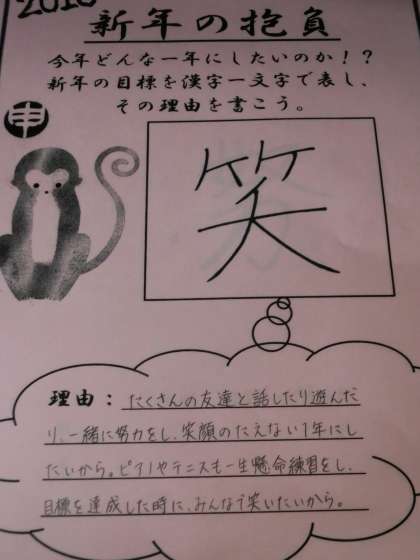 新年の抱負
今年どんな一年にしたいのか！？
新年の目標を漢字一文字で表し、
その理由を書こう。
申
笑
理由：たくさんの友達と話したり遊んだ
り、一緒に努力をし、笑顔のたえない1年にし
たいから。ピアノやテニスも一生懸命練習をし、
目標を達成した時に、みんなで笑いたいから。